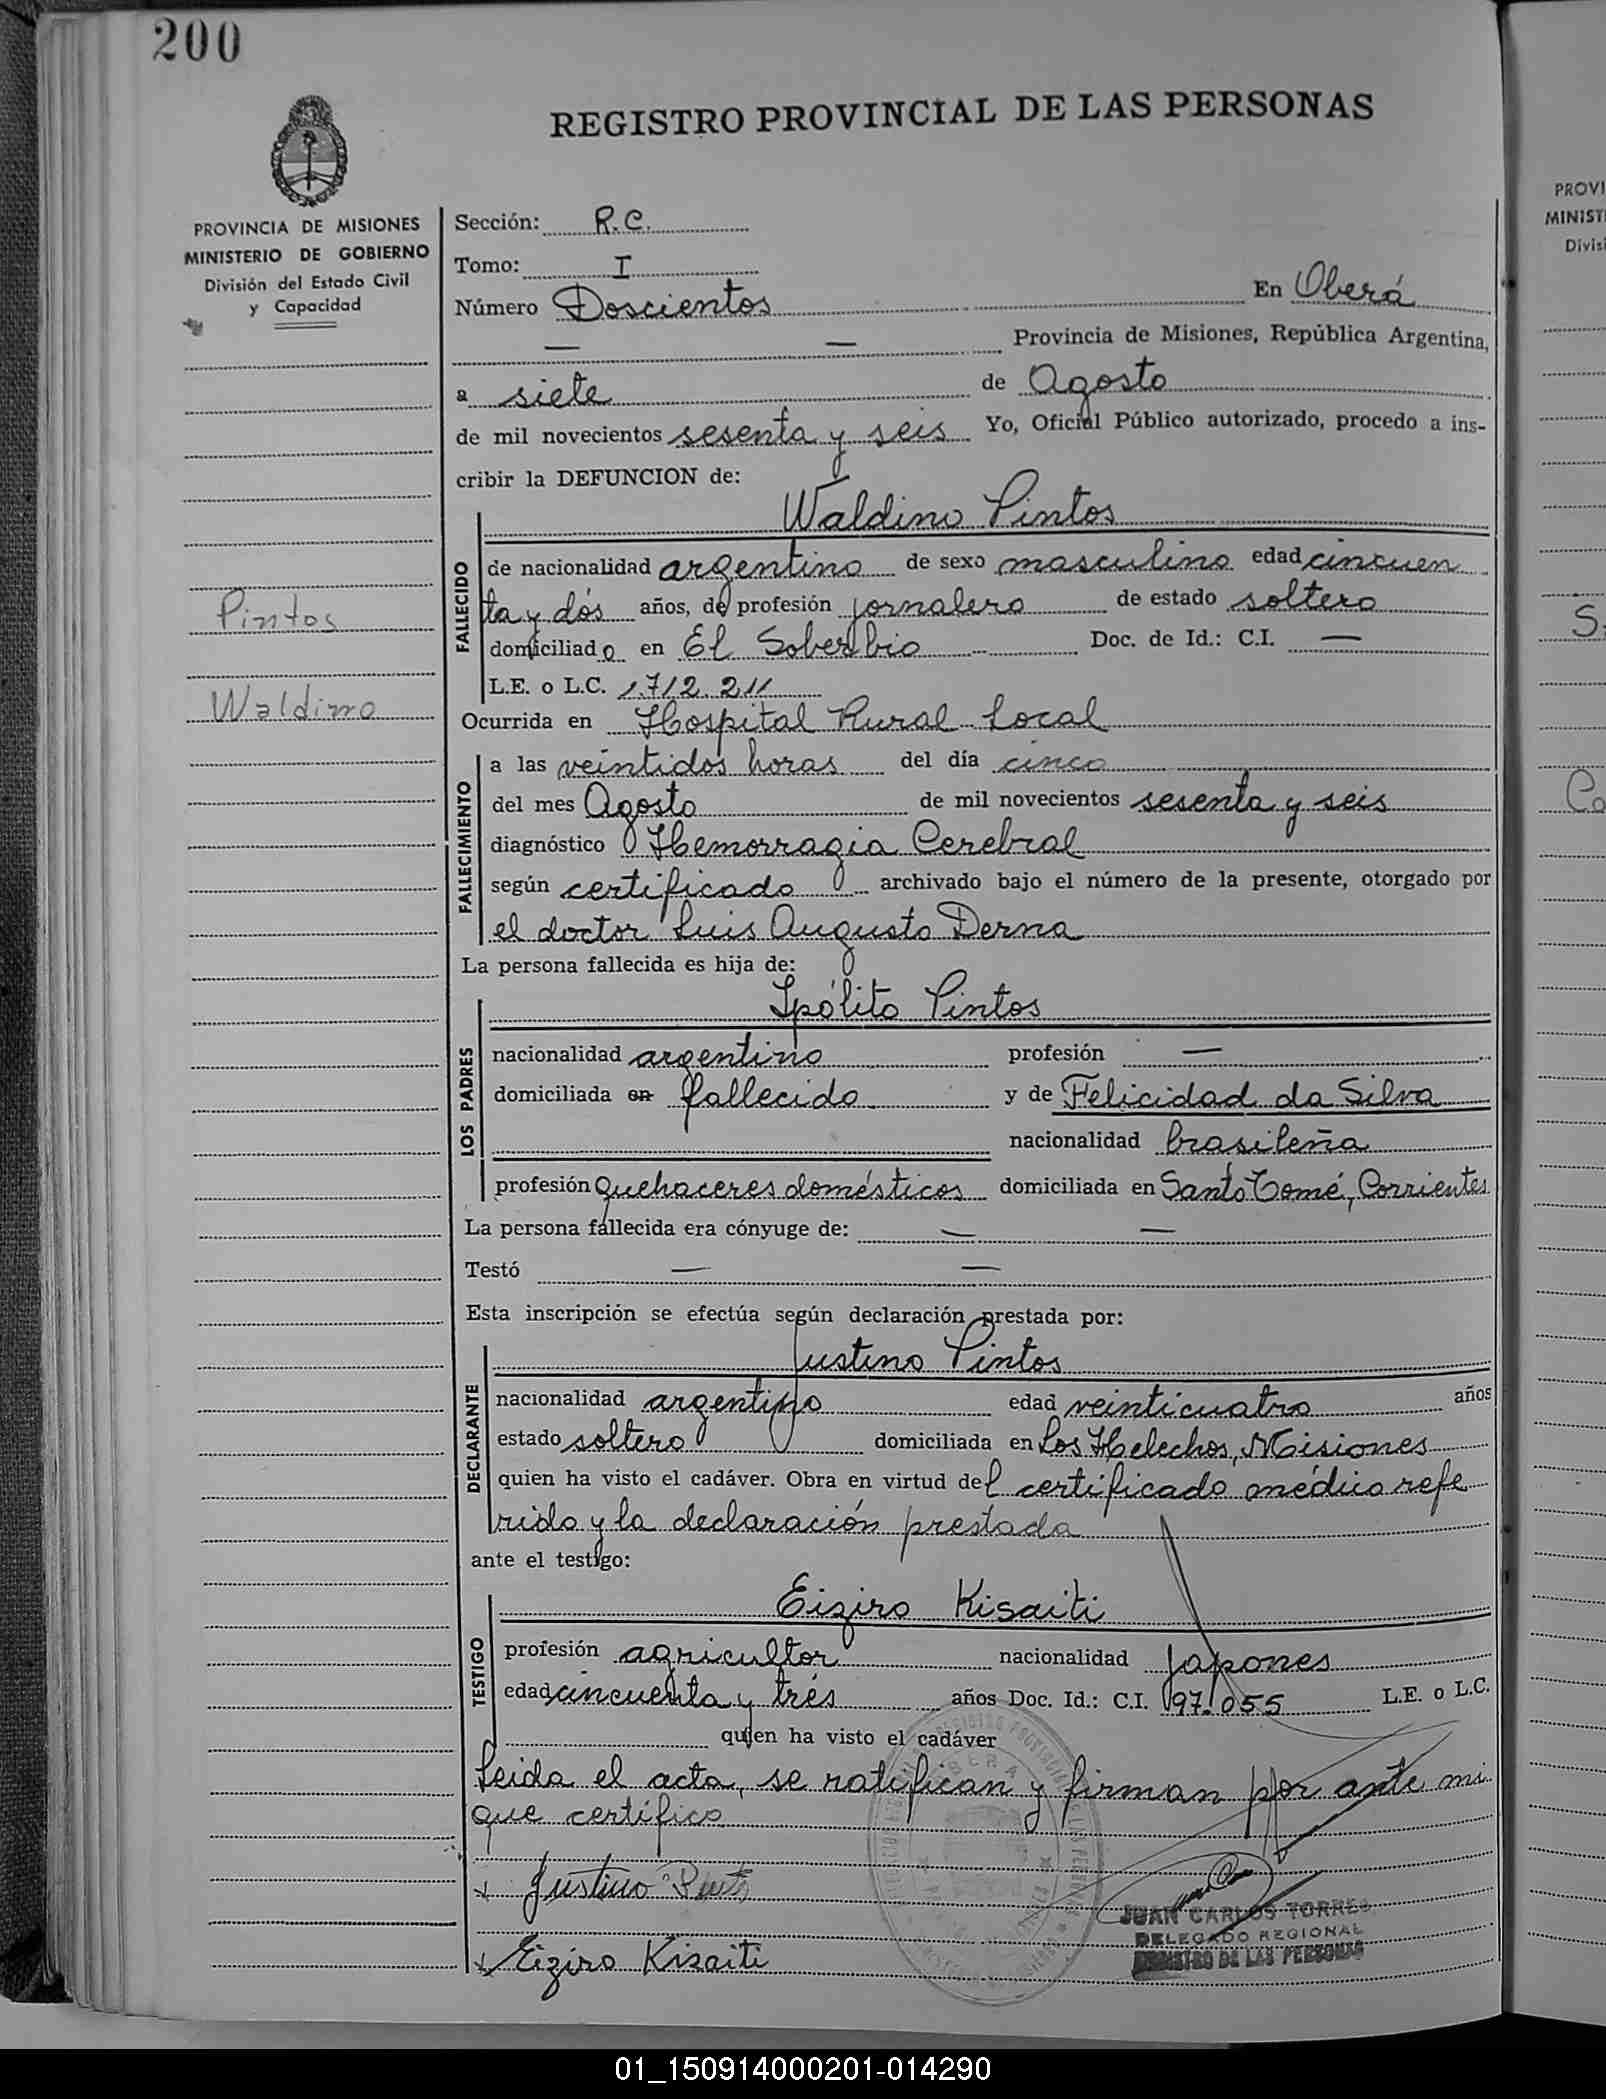 200
REGISTRO PROVINCIAL DE LAS PERSONAS
PROVINCIA DE MISIONES
MINISTERIO DE GOBIERNO
División del Estado Civil
y Capacidad
Pintos
Waldino
Sección: R.C.
Tomo: I
Número Doscientos En Oberá
— — Provincia de Misiones, República Argentina,
a siete de Agosto
de mil novecientos sesenta y seis Yo, Oficial Público autorizado, procedo a ins-
cribir la DEFUNCION de:
Waldino Pintos
FALLECIDO
de nacionalidad argentino de sexo masculino edad cincuen
ta y dós años, de profesión jornalero de estado soltero
domiciliado en El Soberbio Doc. de Id.: C.I. —
L.E. o L.C. 1.712.211
Ocurrida en Hospital Rural Local
FALLECIMIENTO
a las veintidos horas del día cinco
del mes Agosto de mil novecientos sesenta y seis
diagnóstico Hemorragia Cerebral
según certificado archivado bajo el número de la presente, otorgado por
el doctor Luis Augusto Derna
La persona fallecida es hija de:
Ipólito Pintos
LOS PADRES
nacionalidad argentino profesión —
domiciliada en fallecido y de Felicidad da Silva
nacionalidad brasileña
profesión Quehaceres domésticos domiciliada en Santo Tomé, Corrientes
La persona fallecida era cónyuge de: — —
Testó — —
Esta inscripción se efectúa según declaración prestada por:
Justino Pintos
DECLARANTE
nacionalidad argentino edad veinticuatro años
estado soltero domiciliada en Los Helechos, Misiones
quien ha visto el cadáver. Obra en virtud del certificado médico refe
rido y la declaración prestada
ante el testigo:
Eiziro Kisaiti
TESTIGO
profesión agricultor nacionalidad japones
edad cincuenta y trés años Doc. Id.: C.I. 97.055 L.E. o L.C.
quien ha visto el cadáver
Leida el acta, se ratifican y firman por ante mi
que certifico
x Justino
x Eiziro Kisaiti
JUAN CARLOS TORRES
DELEGADO REGIONAL
REGISTRO DE LAS PERSONAS
PROVI
MINIST
Divis
01_150914000201-014290